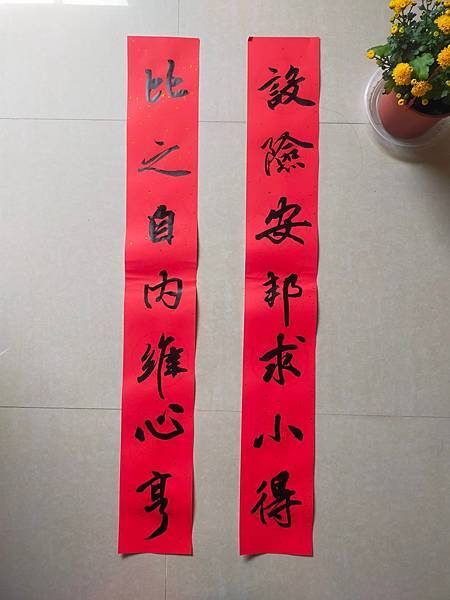 設險安邦求小得
比之自內維心亨